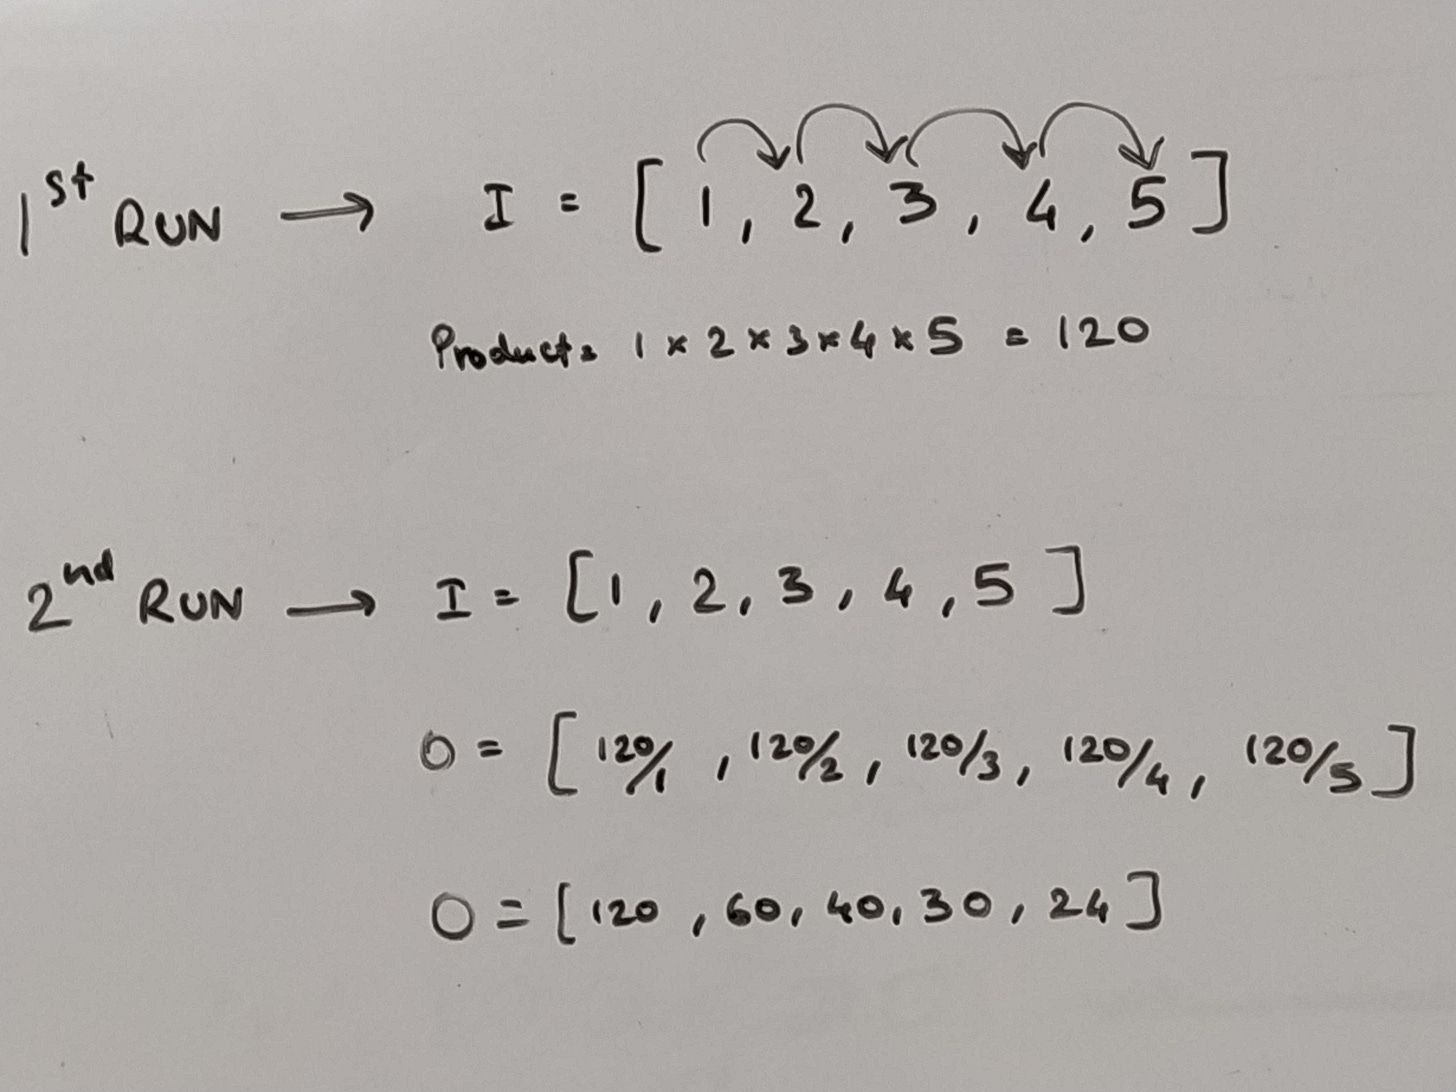 1st RUN → I = [1, 2, 3, 4, 5]
Product = 1 × 2 × 3 × 4 × 5 = 120
2nd RUN → I = [1, 2, 3, 4, 5]
O = [120/1, 120/2, 120/3, 120/4, 120/5]
O = [120, 60, 40, 30, 24]